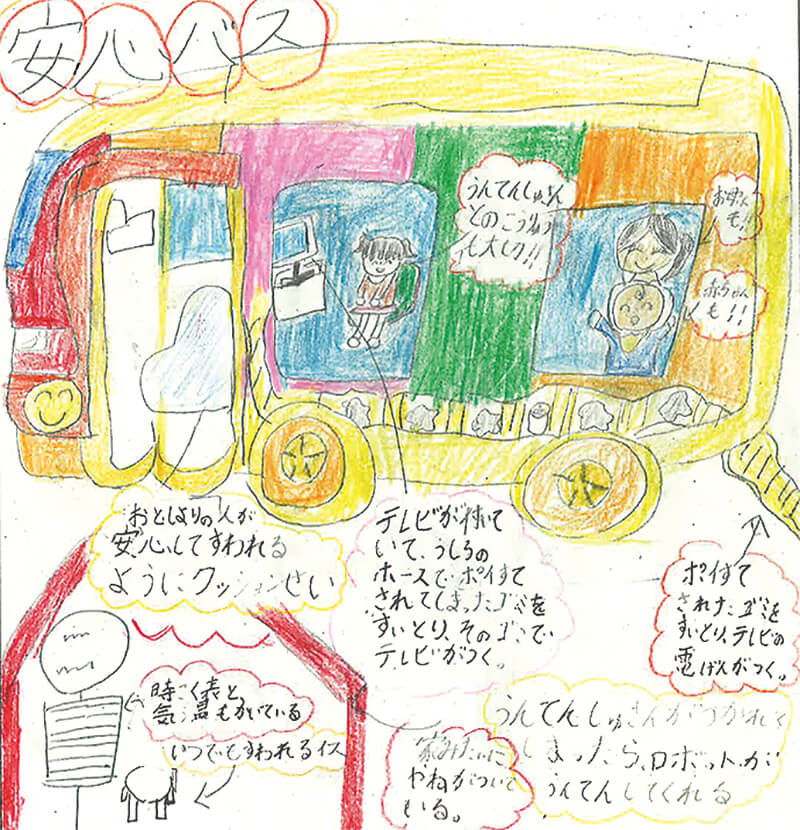 安心バス
うんてんしゅさん
とのこうりゅう
も大切!!
お母さん
も!!
赤ちゃん
も!!
おとしよりの人が
安心してすわれる
ようにクッションせい
テレビが付いて
いて、うしろの
ホースでポイすて
されてしまったゴミを
すいとり、そのゴミで
テレビがつく。
ポイすて
されたゴミを
すいとり、テレビの
電げんがつく。
時こく表と、
気温もかいている
いつでもすわれるイス
家みたいに
やねがついて
いる。
うんてんしゅさんがつかれて
しまったら、ロボットが
うんてんしてくれる